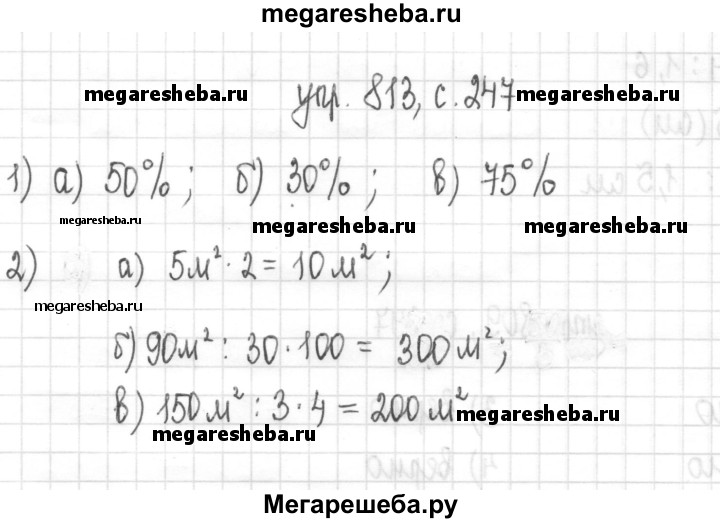 megaresheba.ru
megaresheba.ru упр. 813, с. 247 megaresheba.ru
1) а) 50%; б) 30%; в) 75%
megaresheba.ru megaresheba.ru megaresheba.ru
2) а) 5м²·2 = 10м²;
megaresheba.ru
б) 90м² : 30·100 = 300м²;
в) 150м² : 3·4 = 200м²
megaresheba.ru
megaresheba.ru
Мегарешеба.ру